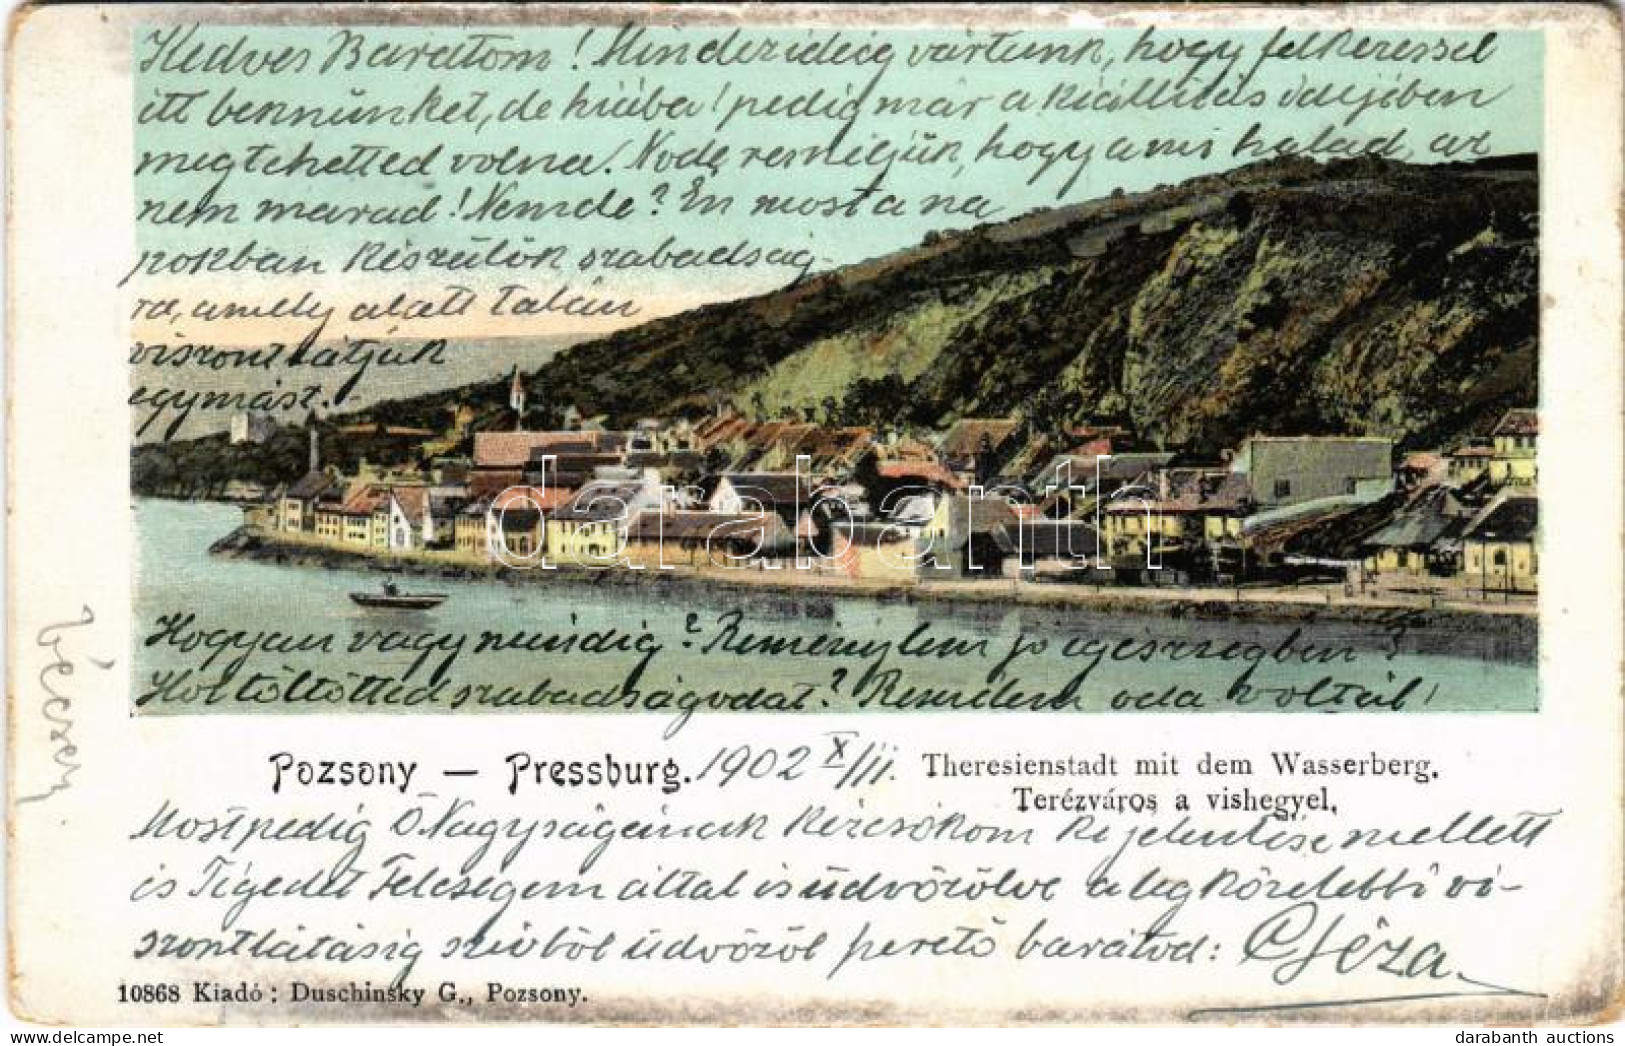 Kedves Barátom! Mindezideig vártunk, hogy felkeressel
itt bennünket, de hiába! pedig már a kiállitás idejében
megtehetted volna. No de reméljük, hogy ami halad, az
nem marad! Nemde? Én most a na
pokban készülök szabadság-
ra, amelly alatt talán
viszontlátjuk
egymást.
darabanth
Hogyan vagy mindig? Reménylem jó egészségben?
Hol töltötted szabadságodat? Remélem oda voltál!
Pozsony — Pressburg. 1902 X/11. Theresienstadt mit dem Wasserberg.
Terézváros a vishegyel.
Most pedig Ő Nagyságának kézcsókom kijelentése mellett
és Tégedet Feleségem által is üdvözölve a legközelebbi vi-
szontlátásig szivből üdvözöl szerető barátod: Géza
10868 Kiadó: Duschinsky G., Pozsony.
darabanth auctions